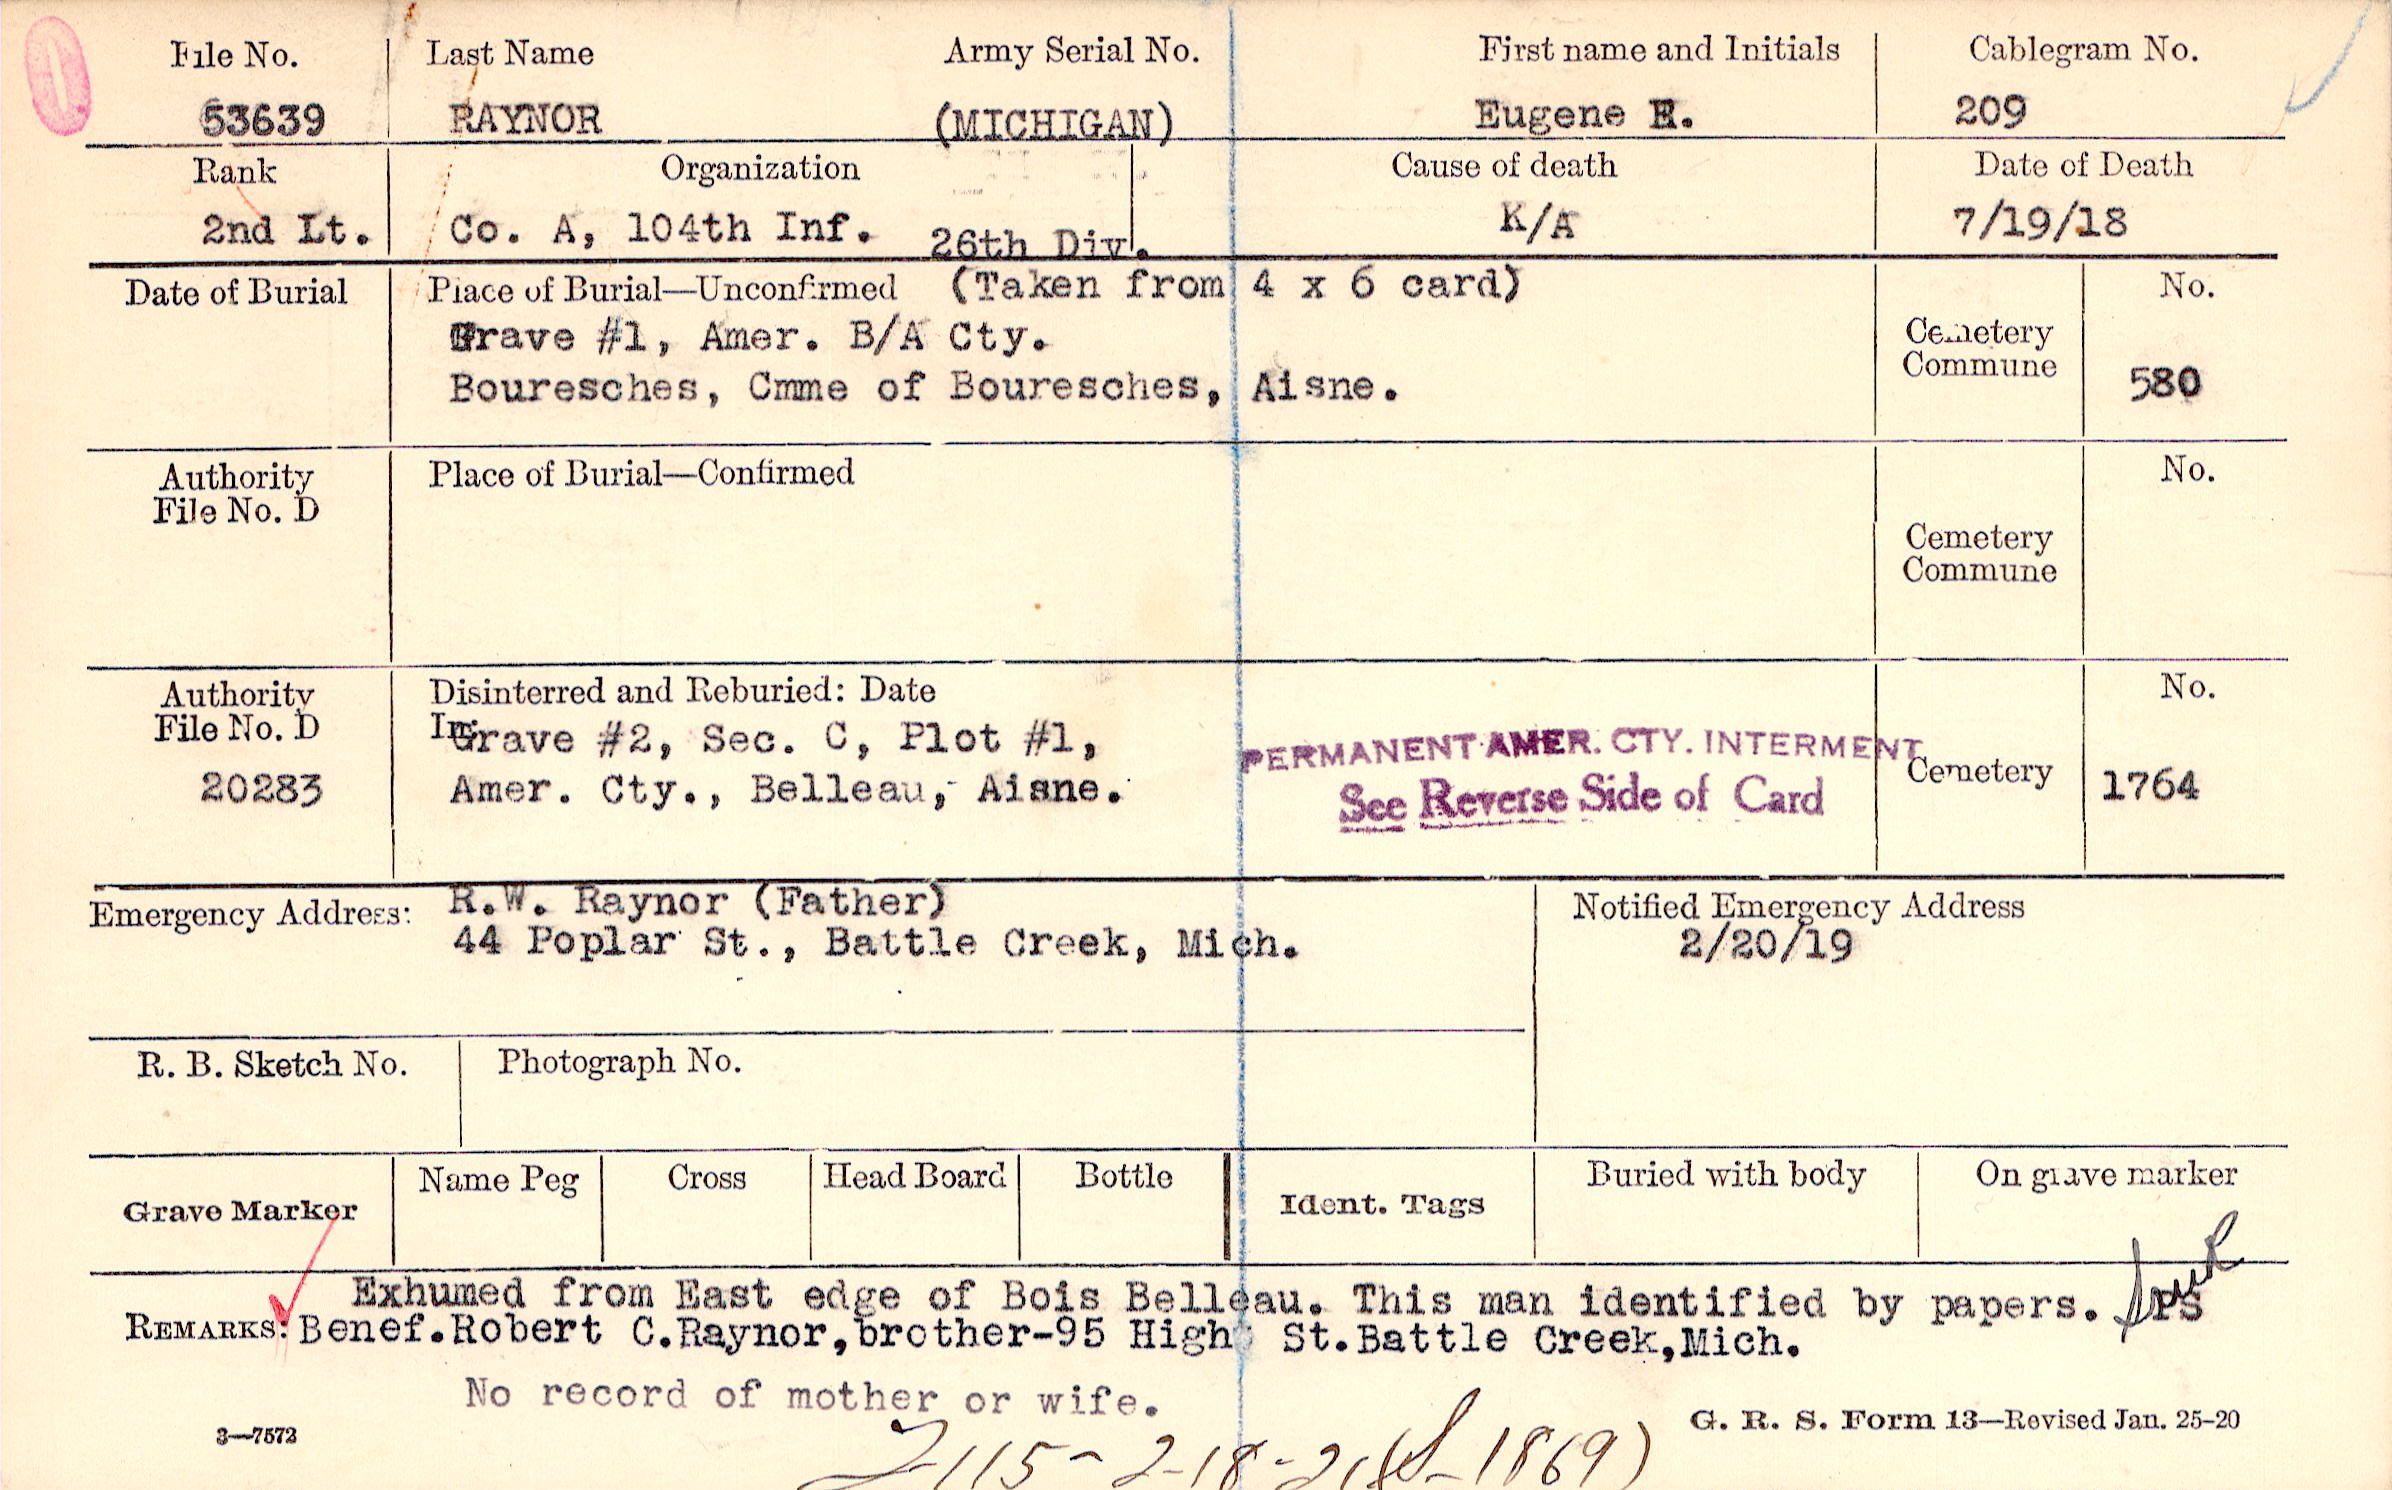 File No. Last Name Army Serial No. First name and Initials Cablegram No.
53639 RAYNOR (MICHIGAN) Eugene E. 209
Rank Organization Cause of death Date of Death
2nd Lt. Co. A, 104th Inf. 26th Div. K/A 7/19/18
Date of Burial Place of Burial—Unconfirmed (Taken from 4 x 6 card) No.
Grave #1, Amer. B/A Cty. Cemetery
Bouresches, Cmme of Bouresches, Aisne. Commune 580
Authority Place of Burial—Confirmed No.
File No. D
Cemetery
Commune
Authority Disinterred and Reburied: Date No.
File No. D In Grave #2, Sec. C, Plot #1, PERMANENT AMER. CTY. INTERMENT
20283 Amer. Cty., Belleau, Aisne. See Reverse Side of Card Cemetery 1764
Emergency Address: R.W. Raynor (Father) Notified Emergency Address
44 Poplar St., Battle Creek, Mich. 2/20/19
R. B. Sketch No. Photograph No.
Grave Marker Name Peg Cross Head Board Bottle Ident. Tags Buried with body On grave marker
Exhumed from East edge of Bois Belleau. This man identified by papers.
REMARKS: Benef.Robert C.Raynor,brother-95 High St.Battle Creek,Mich.
No record of mother or wife.
3—7572 G. R. S. Form 13—Revised Jan. 25-20